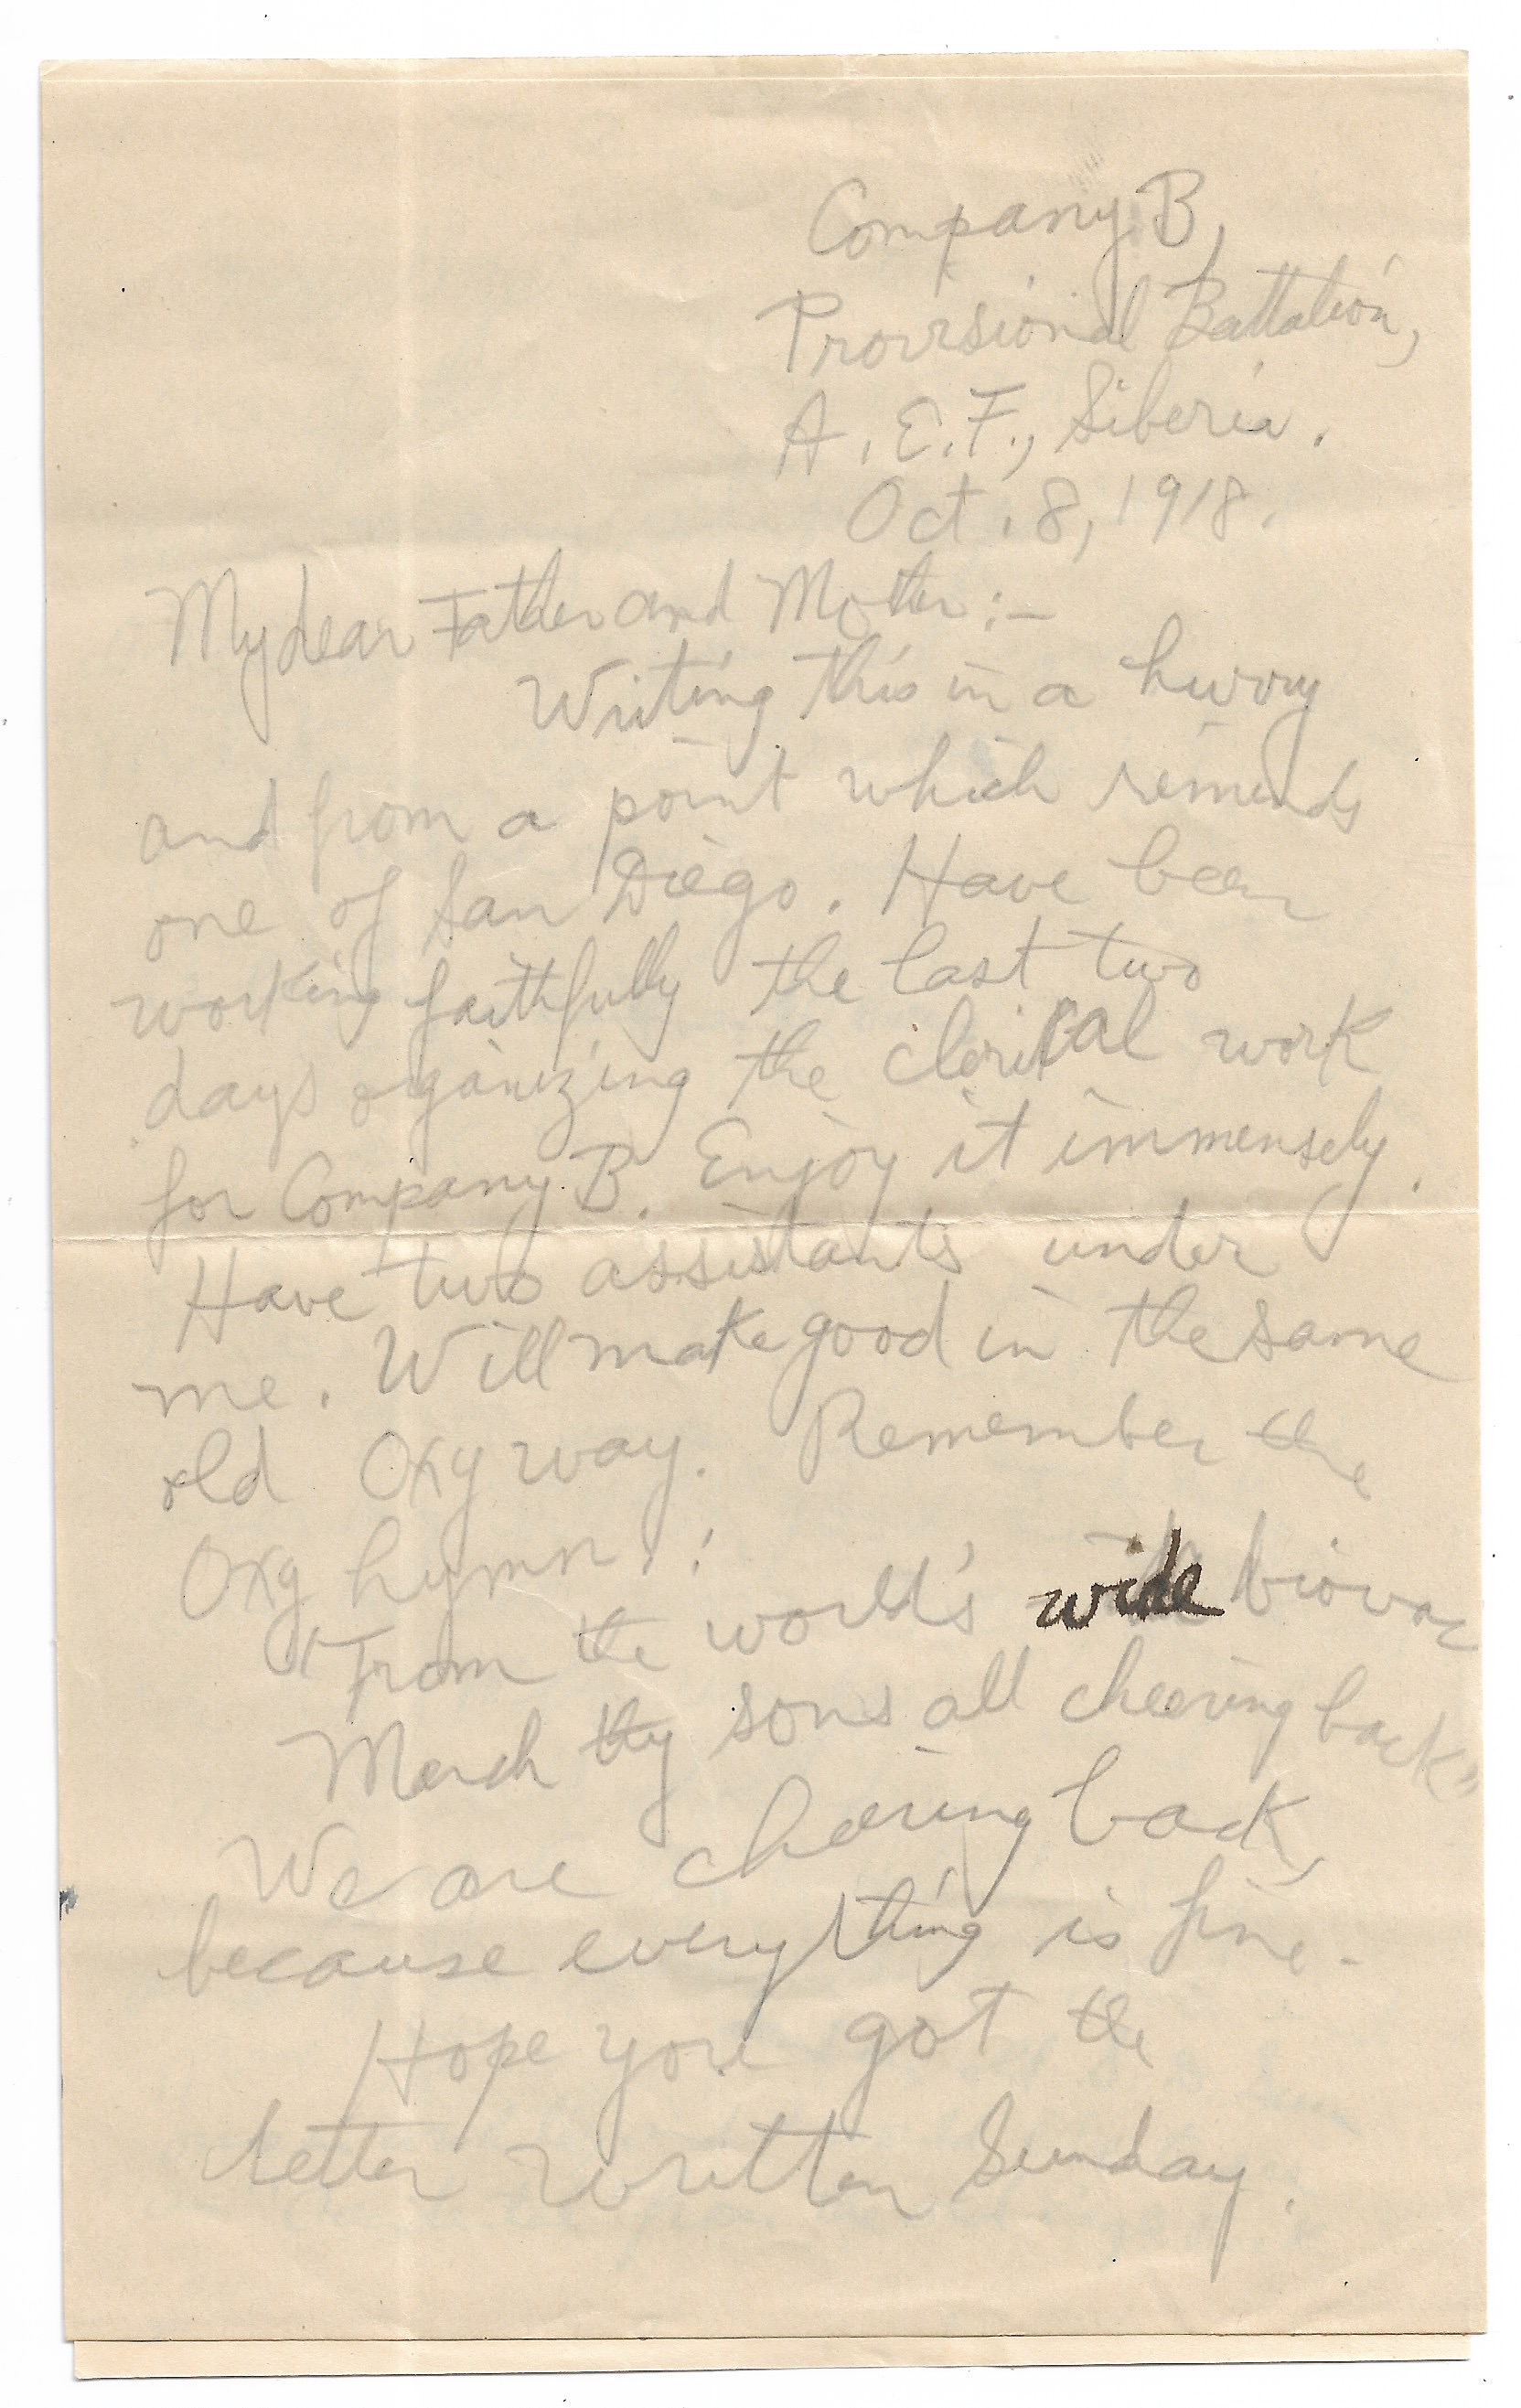 Company B,
Provisional Battalion,
A. E. F., Siberia.
Oct. 8, 1918.
My dear Father and Mother:—
Writing this in a hurry
and from a point which reminds
one of San Diego. Have been
working faithfully the last two
days organizing the clerical work
for Company B. Enjoy it immensely.
Have two assistants under
me. Will make good in the same
old Oxy way. Remember the
Oxy hymn:
"From the world's wide bivouac
March thy sons all cheering back"
We are cheering back,
because everything is fine.
Hope you got the
letter written Sunday.